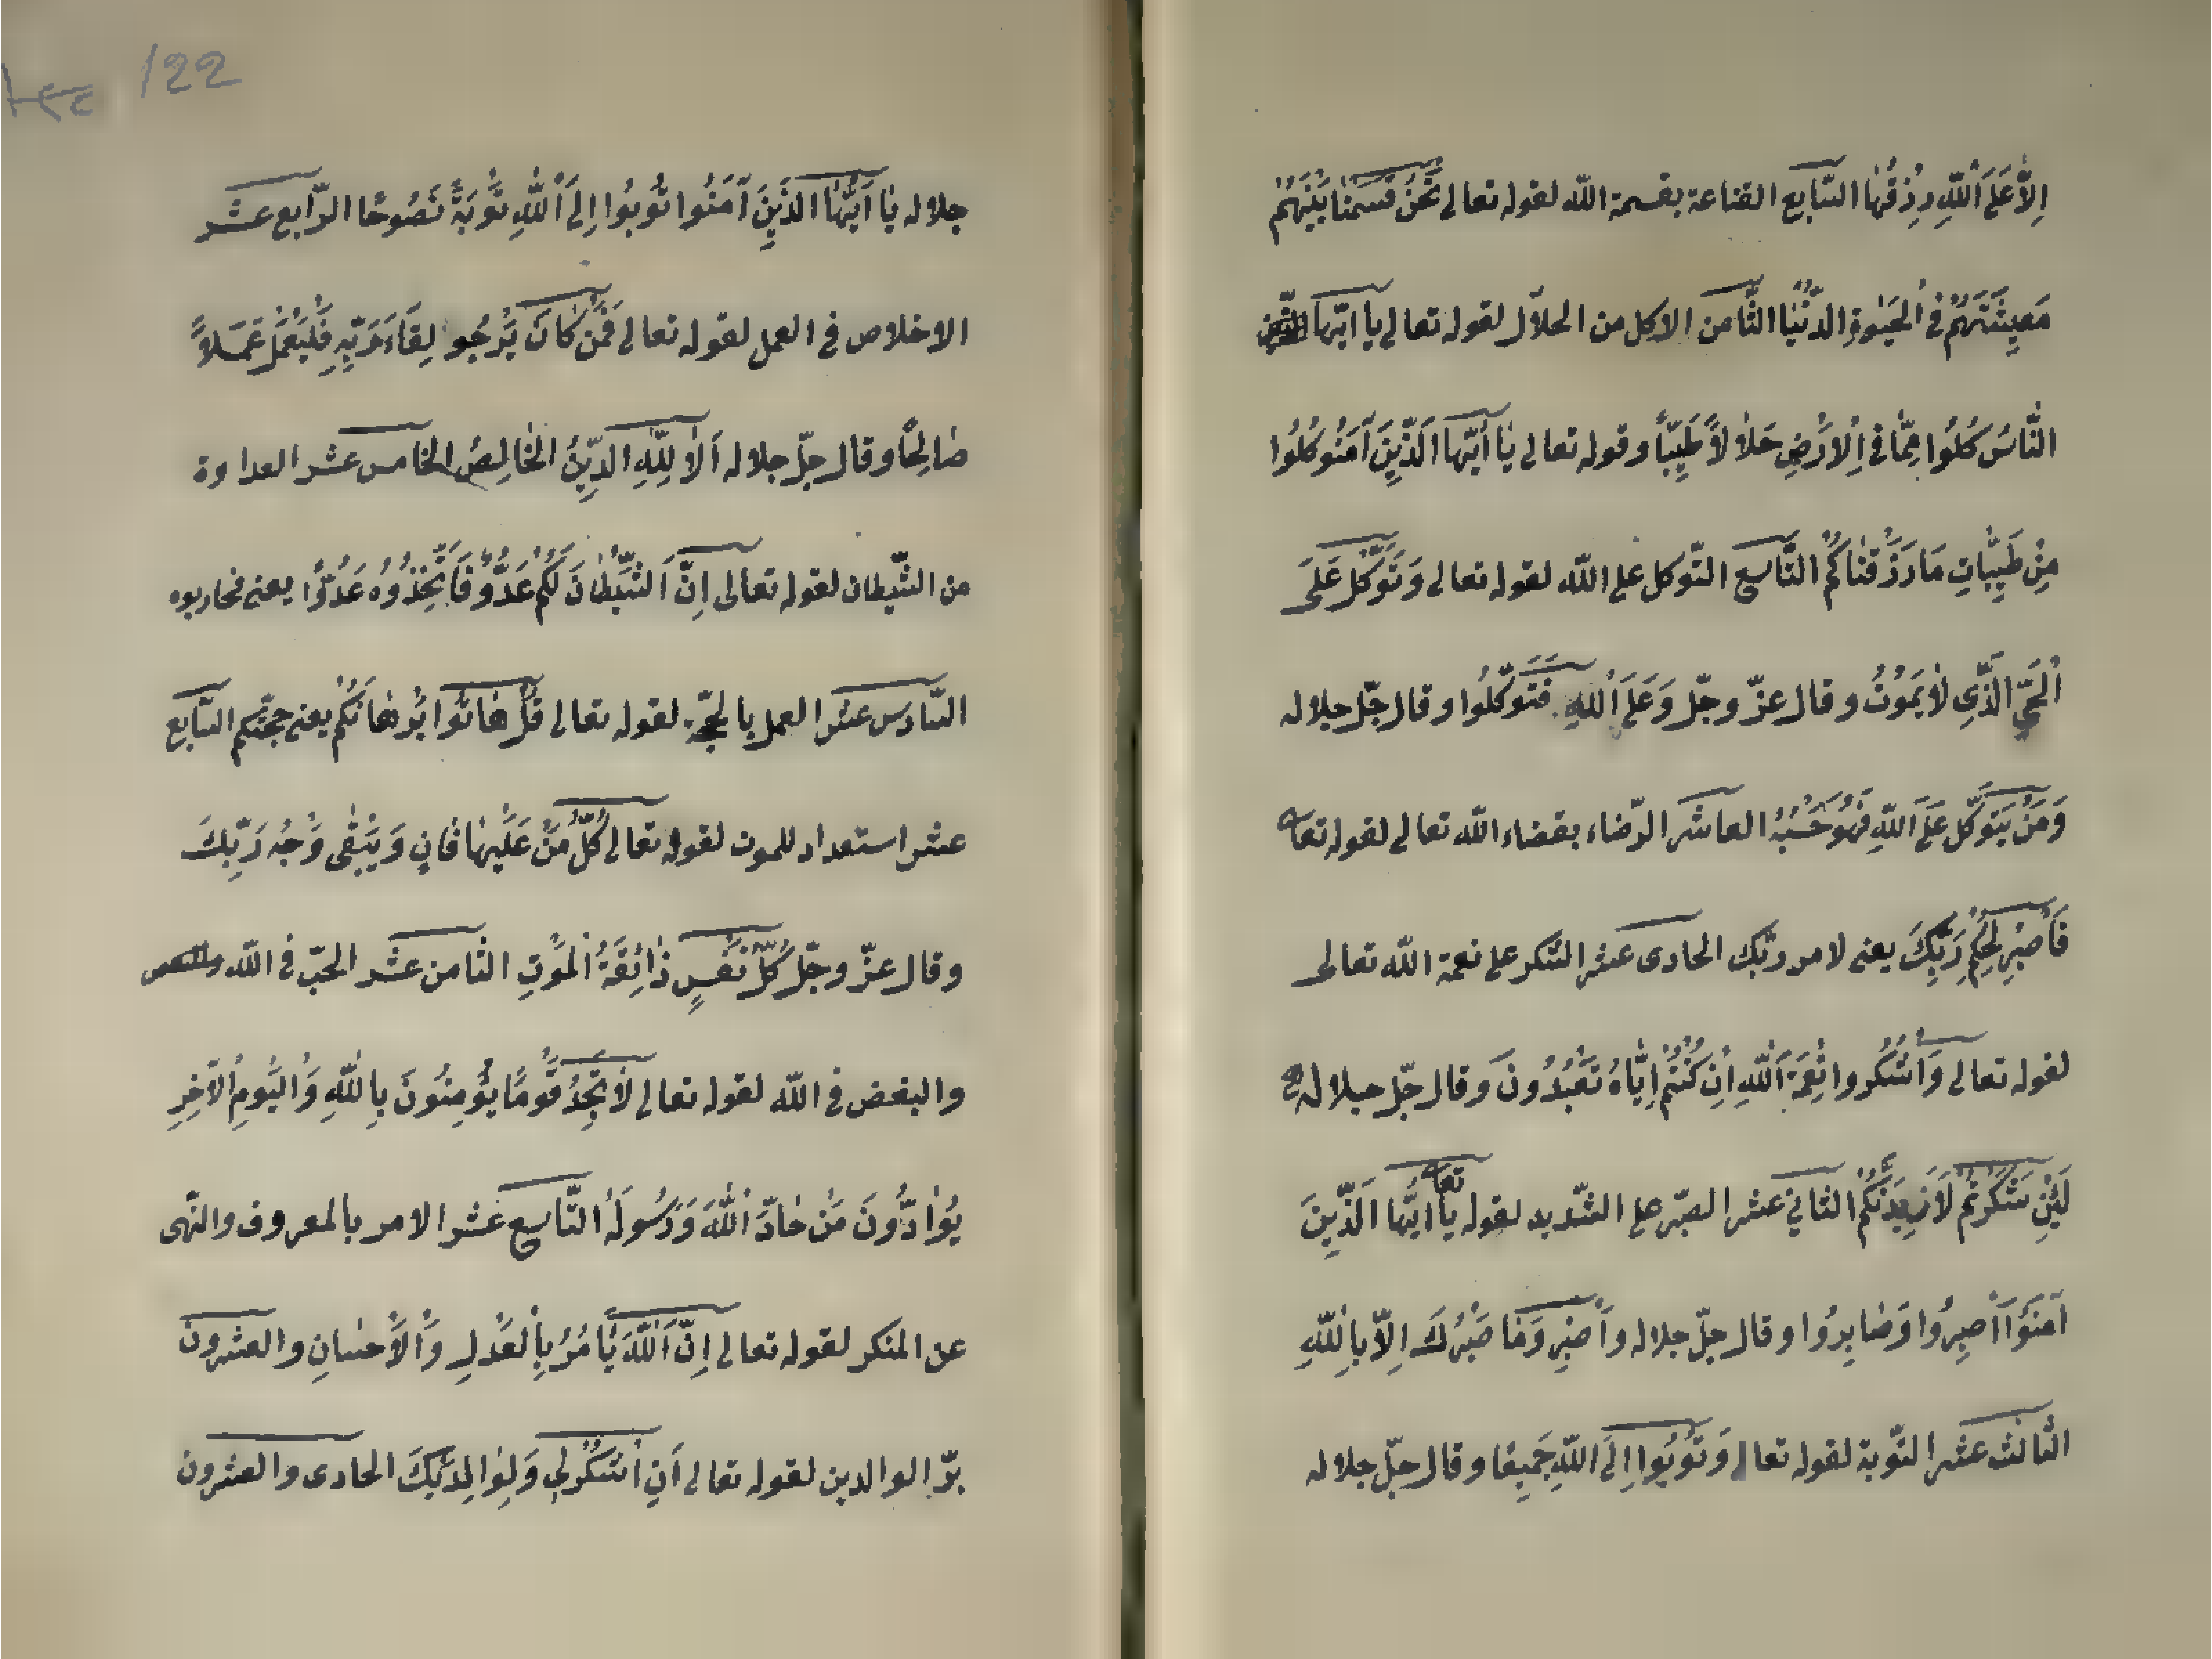 اِلاَّ عَلَى اللّٰهِ رِزْقُهٰا السّابع القناعة بقسمة اللّه لقوله تعالى نَحْنُ قَسَمْنٰا بَيْنَهُمْ
مَعِيشَتَهُمْ فِى الْحَيٰوةِ الدُّنْيٰا الثّامن الاكل من الحلال لقوله تعالى يا ايّها
النّاسُ كُلُوا مِمّٰا فِى اْلاَرْضِ حَلاٰلاً طَيِّباً وقوله تعالى يٰا اَيُّهَا الَّذِينَ آمَنُو كُلُوا
مِنْ طَيِّبٰاتِ مَا رَزَقْنٰاكُمْ التّاسع التّوكل على اللّه لقوله تعالى وَتَوَكَّلْ عَلَى
الْحَىِّ الَّذِى لاٰ يَمُوْتُ وقال عزّ وجلّ وَعَلَى اللّٰهِ فَتَوَكَّلُوا وقال جلّ جلاله
وَمَنْ يَتَوَكَّلْ عَلَى اللّٰهِ فَهُوَ حَسْبُهُ العاشر الرّضاء بقضاء اللّه تعالى لقوله تعا
فَاْصْبِرْ لِحُكْمِ رَبِّكَ يعنى لامر ربّك الحادى عشر الشكر على نعمة اللّه تعالى
لقوله تعالى وَاْشْكُروا نِعْمَةَ اللّٰهِ اِنْ كُنْتُمْ اِيّٰاهُ تَعْبُدُونَ وقال جلّ جلاله
لَئِنْ شَكَرْتُمْ لَاَزِيدَنَّكُمْ الثانى عشر الصّبر على الشّديد لقوله تعا يٰا ايّها الَّذِينَ
آمَنُوا اْصْبِرُوا وَصٰابِرُوا وقال جلّ جلاله وَاْصْبِرْ وَمٰا صَبْرُكَ اِلاّ بِاللّٰهِ
الثّالث عشر التّوبة لقوله تعالى وَتُوبُوا اِلَى اللّٰهِ جَمِيعًا وقال جلّ جلاله
122
جلاله يٰا اَيُّهَا الَّذِينَ آمَنُوا تُوبُوا اِلَى اللّٰهِ تَوْبَةً نَصُوحًا الرّابع عشر
الاخلاص فى العمل لقوله تعالى فَمَنْ كٰانَ يَرْجُو لِقَاءَ رَبِّهِ فَلْيَعْمَلْ عَمَلاً
صٰالِحًا وقال جلّ جلاله اَلاٰ لِلّٰهِ الدِّينُ الْخٰالِصُ الخامس عشر العداوة
من الشّيطان لقوله تعالى اِنَّ الشَّيْطٰانَ لَكُمْ عَدُوٌّ فَاتَّخِذُوهُ عَدُوًّا يعنى فحاربوه
السّادس عشر العمل بالحجّة لقوله تعالى قُلْ هٰاتُوا بُرْهٰانَكُمْ يعنى حجّتكم السّابع
عشر استعداد للموت لقوله تعالى كُلُّ مَنْ عَلَيْهٰا فٰانٍ وَيَبْقٰى وَجْهُ رَبِّكَ
وقال عزّ وجلّ كُلُّ نَفْسٍ ذٰائِقَةُ الْمَوْتِ الثامن عشر الحبّ فى اللّه
والبغض فى اللّه لقوله تعالى لاٰ تَجِدُ قَوْمًا يُؤْمِنُونَ بِاللّٰهِ وَالْيَوْمِ الْآخِرِ
يُوٰادُّونَ مَنْ حٰادَّ اللّٰهَ وَرَسُولَهُ التّاسع عشر الامر بالمعروف والنّهى
عن المنكر لقوله تعالى اِنَّ اللّٰهَ يَاْمُرُ بِالْعَدْلِ وَالْاِحْسٰانِ والعشرون
برّ الوالدين لقوله تعالى اَنِ اْشْكُرْلِى وَلِوٰالِدَيْكَ الحادى والعشرون